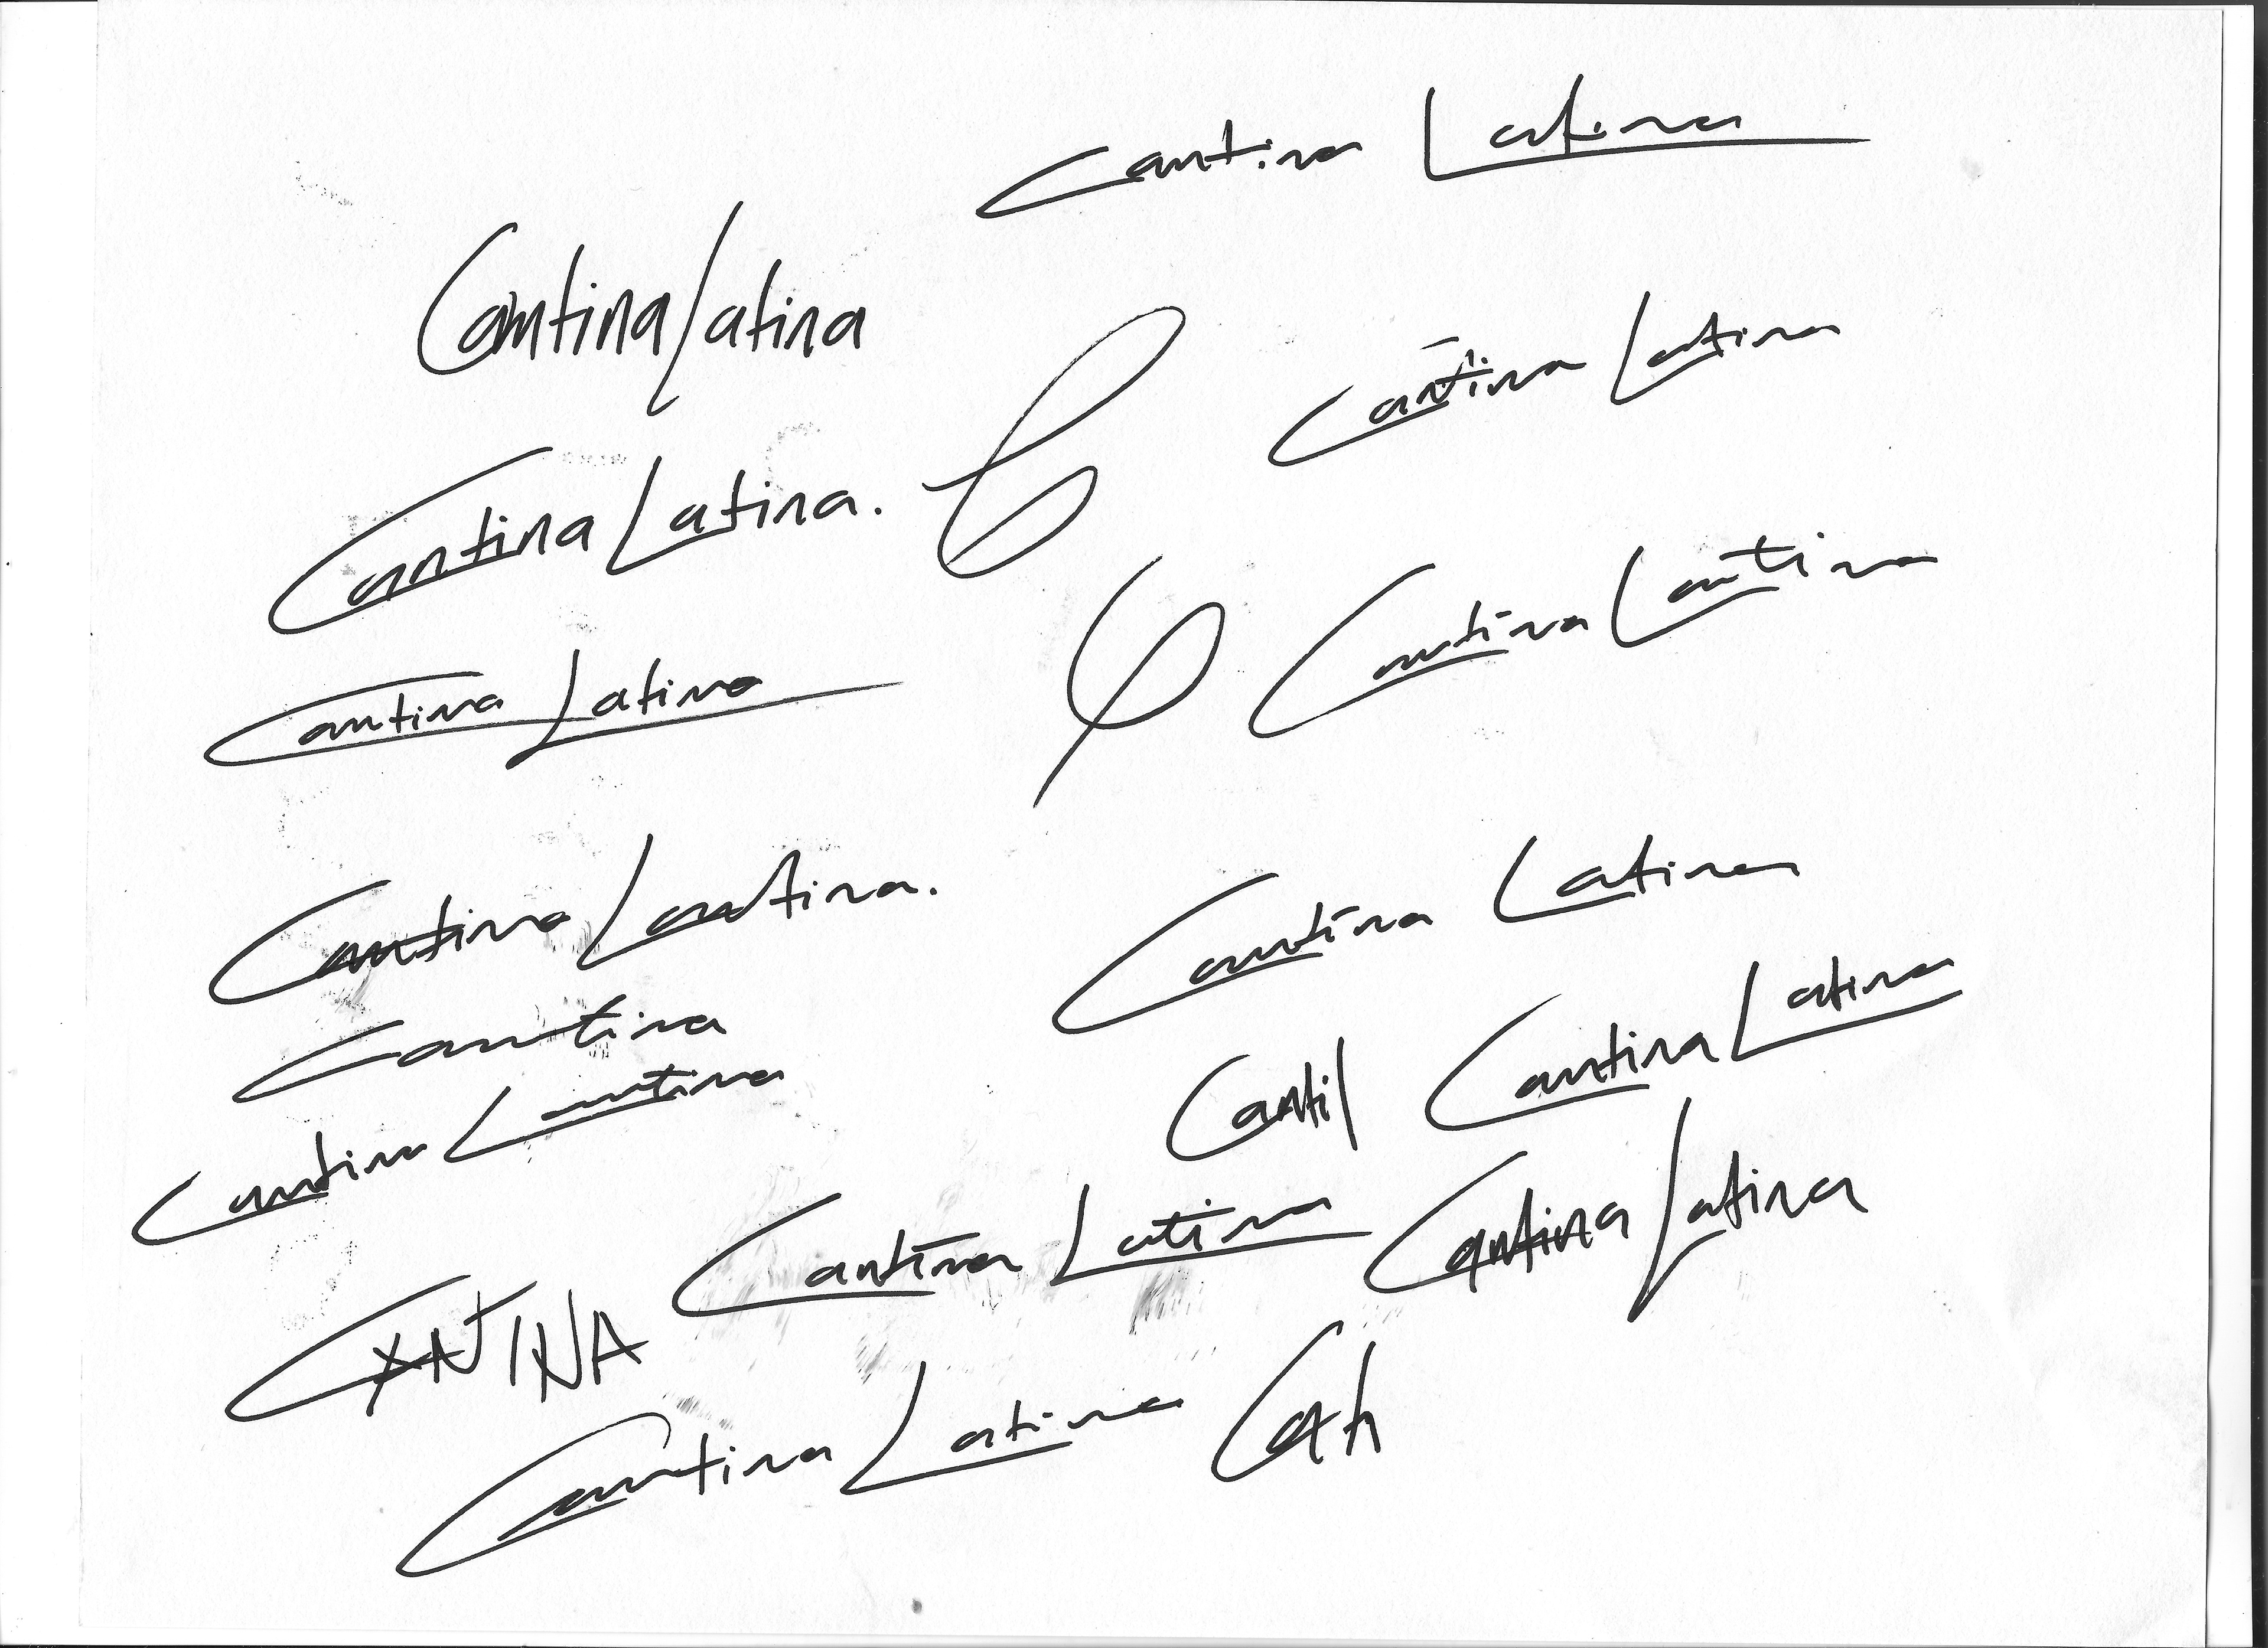 Cantina Latina
Cantina Latina
Cantina Latina
Cantina Latina.
Cantina Latina
Cantina Latina
Cantina Latina.
Cantina Latina
Cantina
Cantina Latina
Cantina Latina
Canti
Cantina Latina
Cantina Latina
CANTINA
Cantina Latina